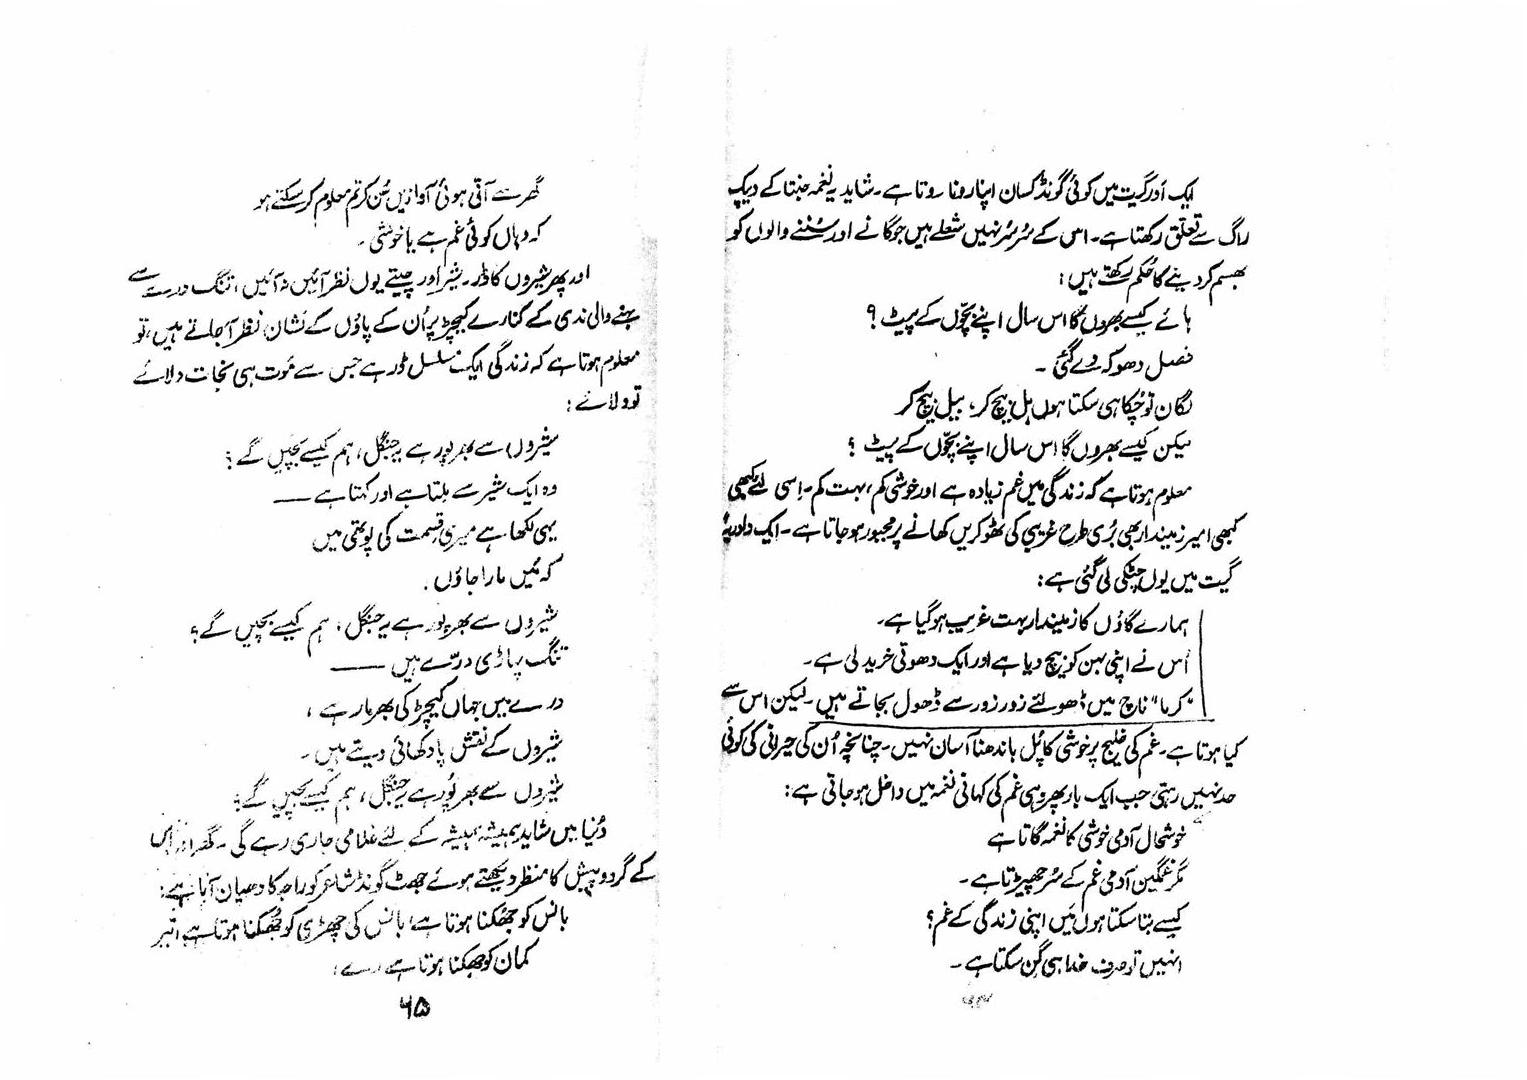 ایک اور گیت میں کوئی گونڈ کسان اپنا رونا روتا ہے۔ شاید یہ نغمہ جنتا کے دیپک
راگ سے تعلق رکھتا ہے۔ اس کے سُر سُر نہیں شعلے ہیں جو گانے اور سُننے والوں کو
بھسم کر دینے کا حکم رکھتے ہیں:
ہائے کیسے بھروں گا اس سال اپنے بچّوں کے پیٹ؟
فصل دھوکہ دے گئی۔
لگان تو چُکا ہی سکتا ہوں ہل بیچ کر، بیل بیچ کر
لیکن کیسے بھروں گا اس سال اپنے بچّوں کے پیٹ؟
معلوم ہوتا ہے کہ زندگی میں غم زیادہ ہے اور خوشی کم، بہت کم۔ اِسی لئے کبھی
کبھی امیر زمیندار بھی بُری طرح غریبی کی ٹھوکریں کھانے پر مجبور ہو جاتا ہے۔ ایک دادریہ
گیت میں یوں چٹکی لی گئی ہے:
ہمارے گاؤں کا زمیندار بہت غریب ہو گیا ہے۔
اُس نے اپنی بہن کو بیچ دیا ہے اور ایک دھوتی خرید لی ہے۔
"کرما" ناچ میں ڈھولئے زور زور سے ڈھول بجاتے ہیں۔ لیکن اس سے
کیا ہوتا ہے۔ غم کی خلیج پر خوشی کا پُل باندھنا آسان نہیں۔ چنانچہ اُن کی حیرانی کی کوئی
حد نہیں رہتی جب ایک بار پھر وہی غم کی کہانی نغمہ میں داخل ہو جاتی ہے:
خوشحال آدمی خوشی کا نغمہ گاتا ہے
مگر غمگین آدمی غم کے سُر چھیڑتا ہے۔
کیسے بتا سکتا ہوں میں اپنی زندگی کے غم؟
انہیں تو صرف خدا ہی گِن سکتا ہے۔
گھر سے آتی ہوئی آوازیں سُن کر تم معلوم کر سکتے ہو
کہ وہاں کوئی غم ہے یا خوشی۔
اور پھر شیروں کا ڈر۔ شیر اور چیتے یوں نظر آئیں نہ آئیں، تنگ درے سے
بہنے والی ندی کے کنارے کیچڑ پر اُن کے پاؤں کے نشان نظر آ جاتے ہیں، تو
معلوم ہوتا ہے کہ زندگی ایک مسلسل ڈر ہے جس سے موت ہی نجات دلائے
تو دلائے:
شیروں سے بھرپور ہے یہ جنگل، ہم کیسے بچیں گے؟
وہ ایک شیر سے ملتا ہے اور کہتا ہے ——
یہی لکھا ہے میری قسمت کی پوتھی میں
کہ میں مارا جاؤں۔
شیروں سے بھرپور ہے یہ جنگل، ہم کیسے بچیں گے؟
تنگ پہاڑی درّے ہیں ——
درے ہیں جہاں کیچڑ کی بھرمار ہے،
شیروں کے نقش پا دکھائی دیتے ہیں۔
شیروں سے بھرپور ہے یہ جنگل، ہم کیسے بچیں گے؟
دُنیا میں شاید ہمیشہ ہمیشہ کے لئے غلامی جاری رہے گی۔ گھر اور اس
کے گرد و پیش کا منظر دیکھتے ہوئے جھٹ گونڈ شاعر کو راجہ کا دھیان آیا ہے:
بانس کو جھکنا ہوتا ہے، بانس کی چھڑی کو جھکنا ہوتا ہے، تیر
کمان کو جھکنا ہوتا ہے رے؛
۶۵